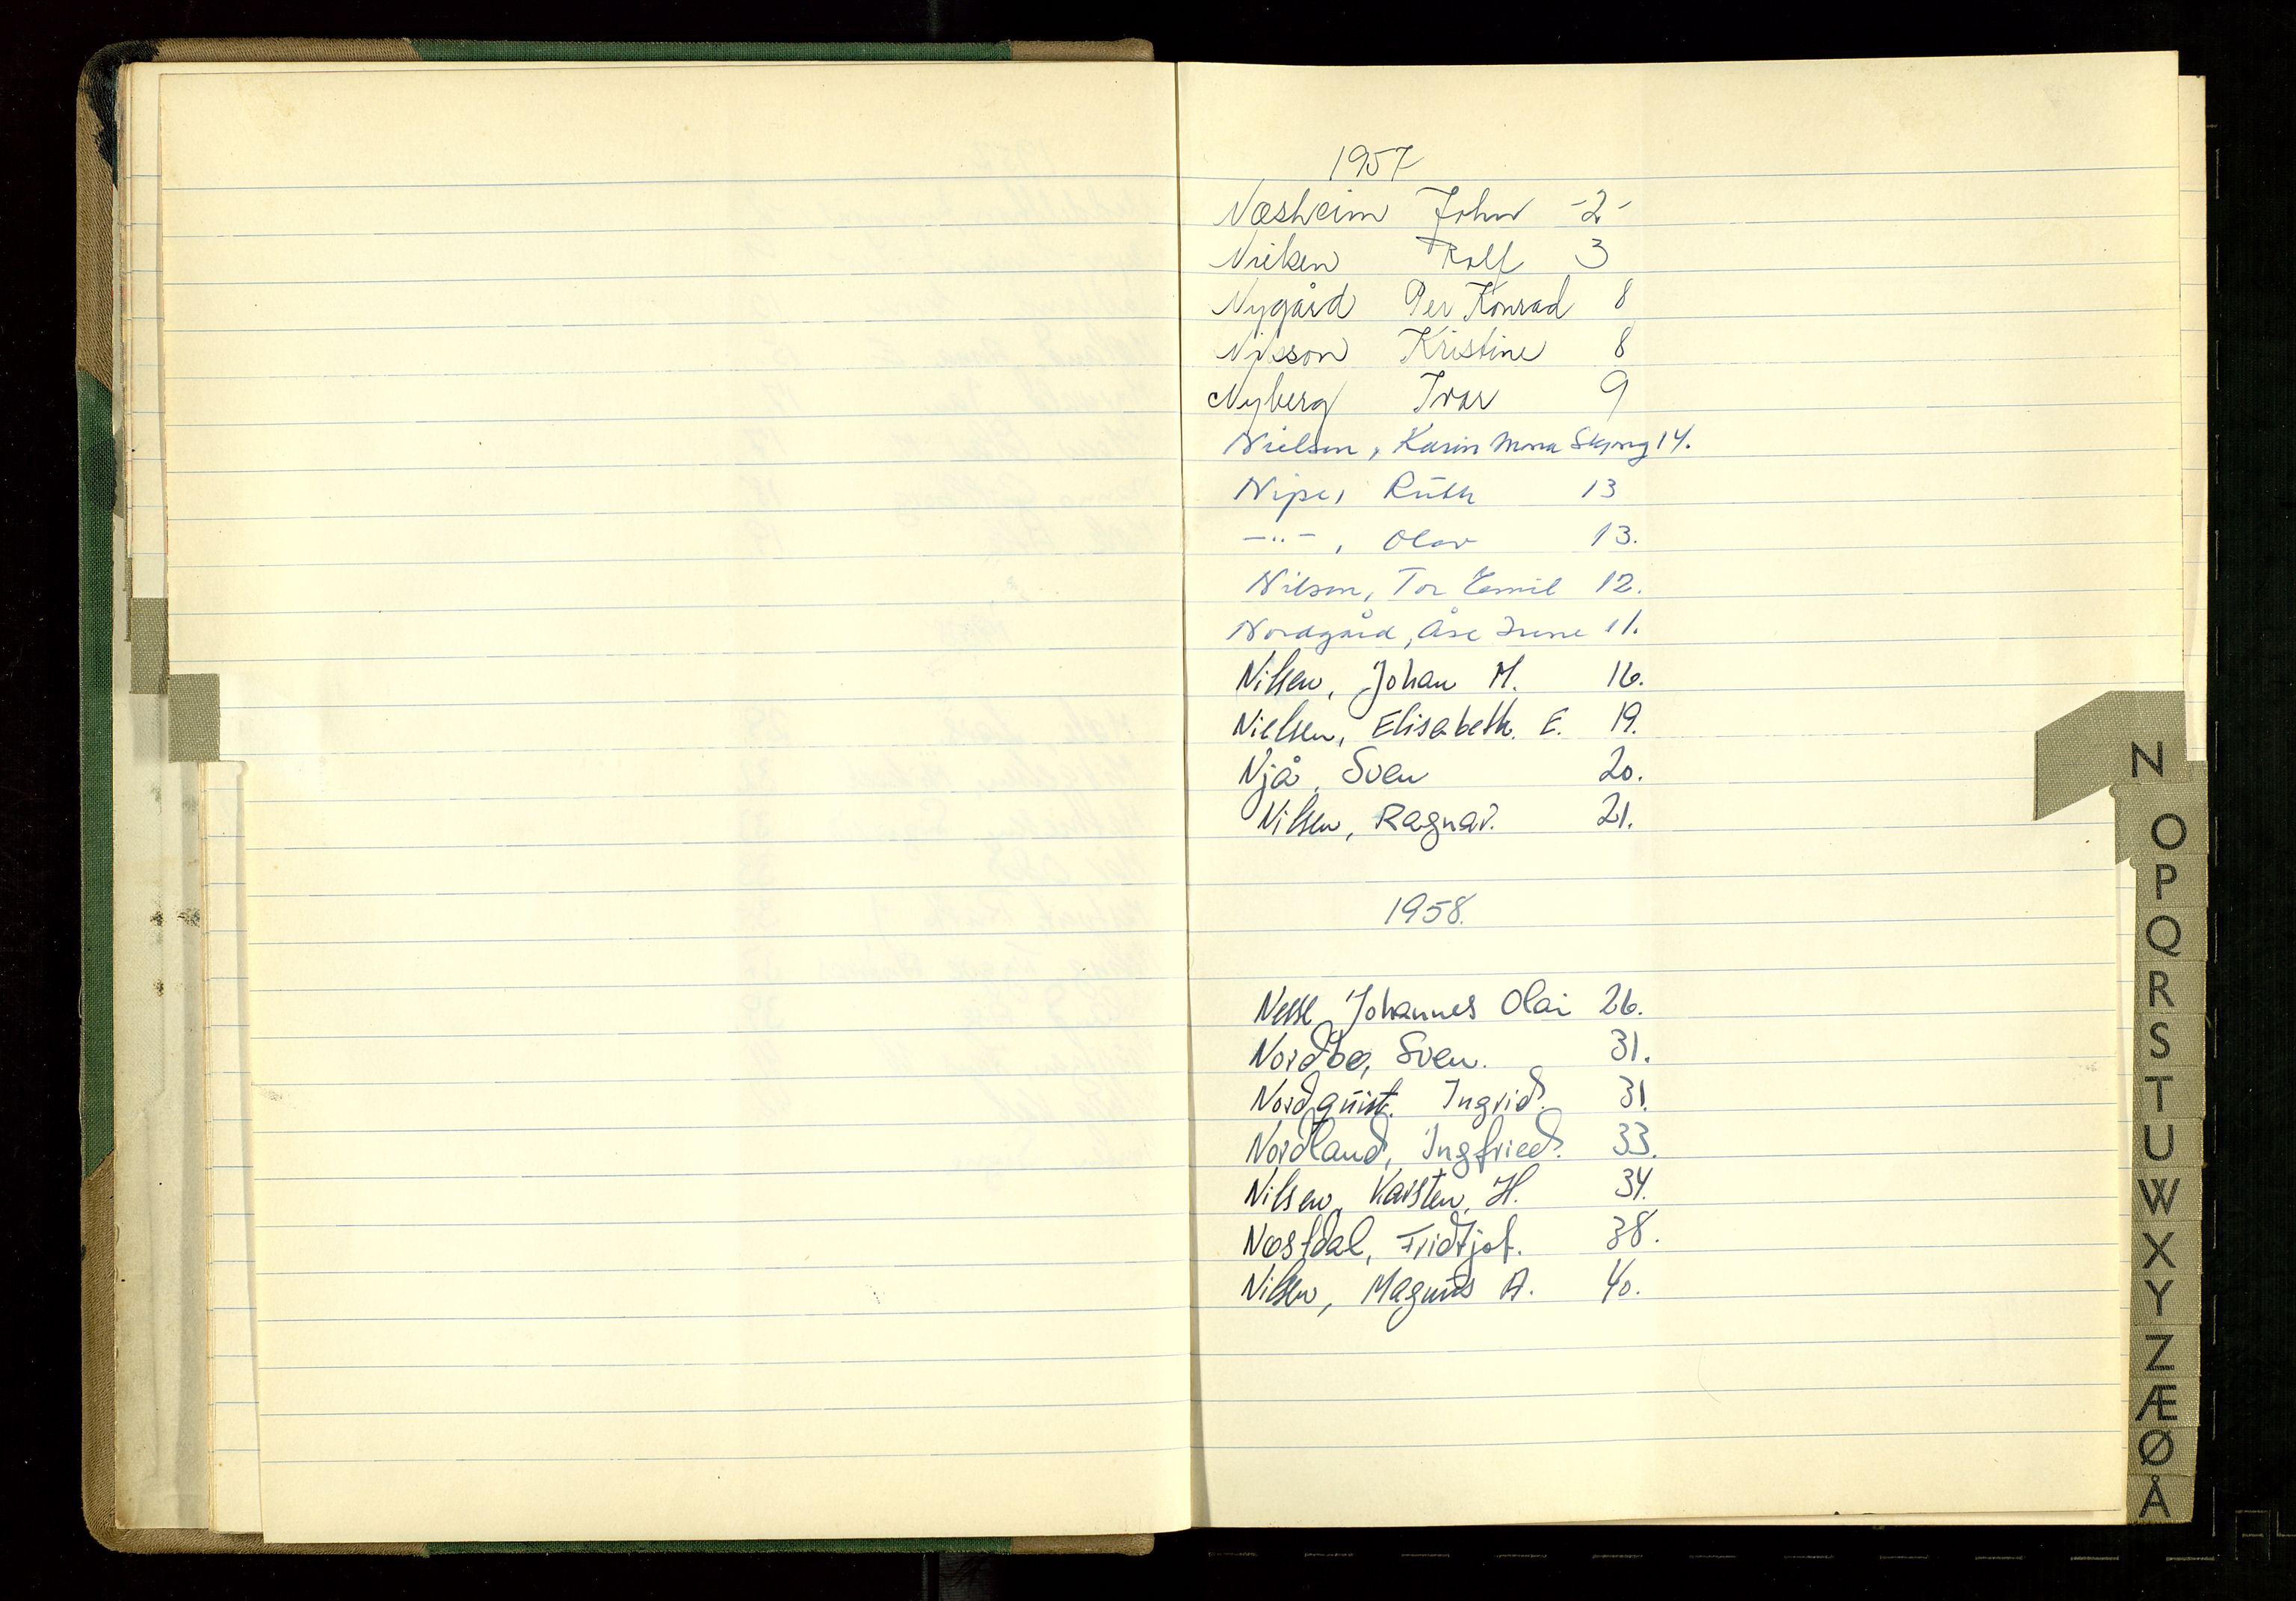 1957
Næsheim John -2-
Nielsen Rolf 3
Nygård Per Konrad 8
Nilsson Kristine 8
Nyberg Ivar 9
Nielsen, Karin Mona 14.
Nipe, Ruth 13
-"-, Olav 13.
Nilsen, Tor Emil 12.
Nordgård, Åse Irene 11.
Nilsen, Johan M. 16.
Nielsen, Elisabeth. E. 19.
Njå, Sven 20.
Nilsen, Ragnar. 21.
1958.
Nesse Johannes Olai 26.
Nordbø, Sven. 31.
Nordquist. Ingrid. 31.
Nordland, Ingfried. 33.
Nilsen, Karsten, H. 34.
Næstdal, Fridtjof. 38.
Nilsen, Magnus A. 40.
N
O
P
Q
R
S
T
U
W
X
Y
Z
Æ
Ø
Å